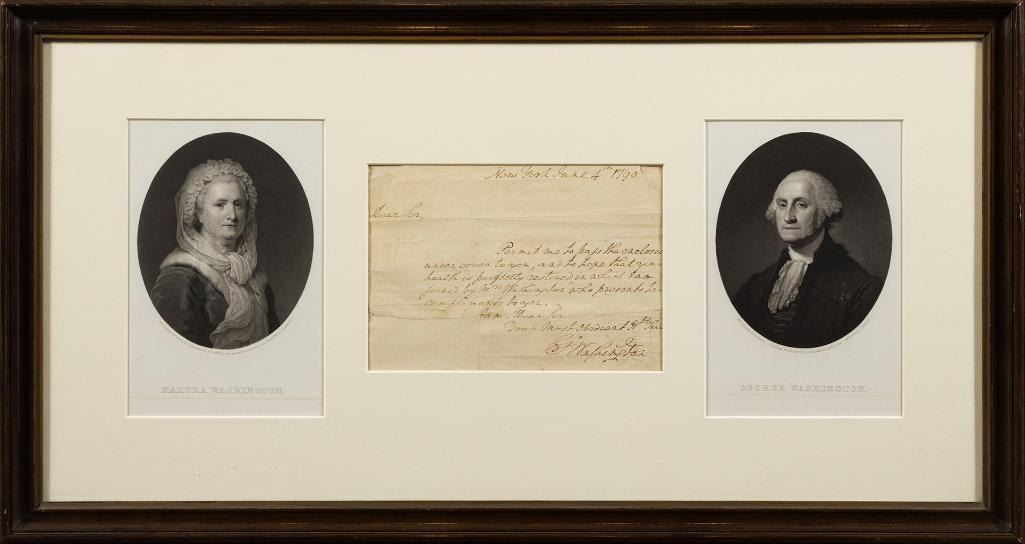 New York June 4th 1790
Dear Sir,
Permit me to pass the enclosed
under cover to you, and to hope that your
health is perfectly restored in which I am
joined by Mrs Washington who presents her
compliments to you.
I am - Dear Sir
Your Most Obedient
Go Washington
MARTHA WASHINGTON.
GEORGE WASHINGTON.